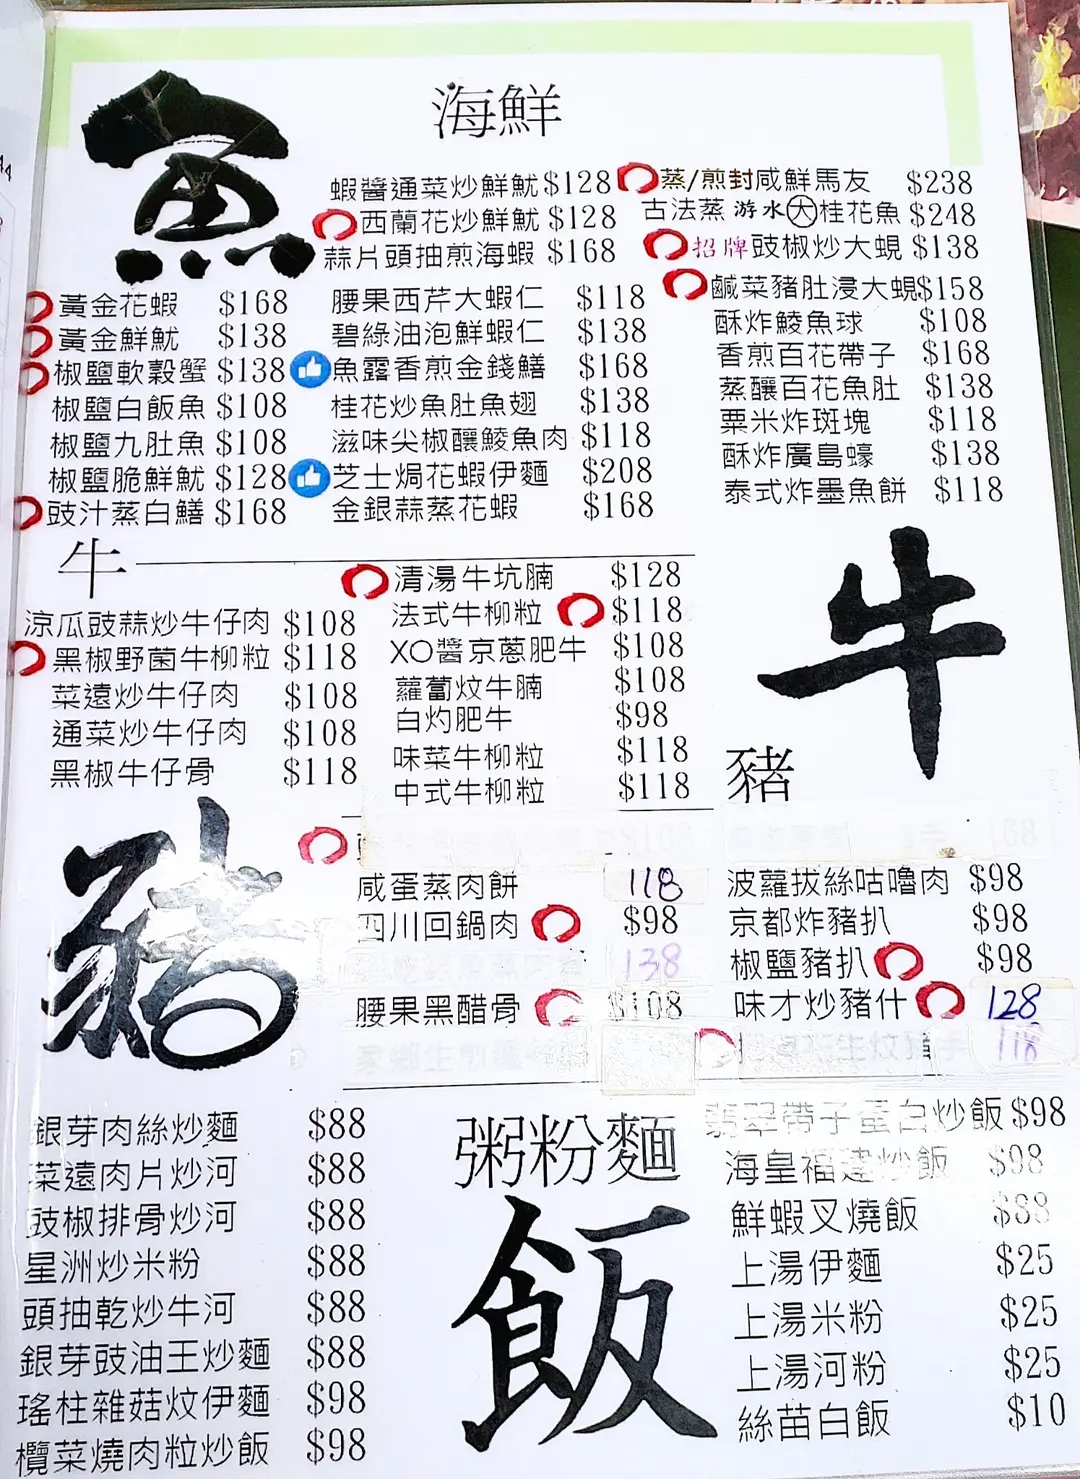 魚
海鮮
蝦醬通菜炒鮮魷 $128
西蘭花炒鮮魷 $128
蒜片頭抽煎海蝦 $168
蒸/煎封咸鮮馬友 $238
古法蒸游水大桂花魚 $248
招牌豉椒炒大蜆 $138
鹹菜豬肚浸大蜆 $158
酥炸鯪魚球 $108
香煎百花帶子 $168
蒸釀百花魚肚 $138
粟米炸斑塊 $118
酥炸廣島蠔 $138
泰式炸墨魚餅 $118
黃金花蝦 $168
黃金鮮魷 $138
椒鹽軟穀蟹 $138
椒鹽白飯魚 $108
椒鹽九肚魚 $108
椒鹽脆鮮魷 $128
豉汁蒸白鱔 $168
腰果西芹大蝦仁 $118
碧綠油泡鮮蝦仁 $138
魚露香煎金錢鱔 $168
桂花炒魚肚魚翅 $138
滋味尖椒釀鯪魚肉 $118
芝士焗花蝦伊麵 $208
金銀蒜蒸花蝦 $168
牛
涼瓜豉蒜炒牛仔肉 $108
黑椒野菌牛柳粒 $118
菜遠炒牛仔肉 $108
通菜炒牛仔肉 $108
黑椒牛仔骨 $118
清湯牛坑腩 $128
法式牛柳粒 $118
XO醬京蔥肥牛 $108
蘿蔔炆牛腩 $108
白灼肥牛 $98
味菜牛柳粒 $118
中式牛柳粒 $118
牛
豬
豬
咸蛋蒸肉餅 118
四川回鍋肉 $98
138
腰果黑醋骨 $108
波蘿拔絲咕嚕肉 $98
京都炸豬扒 $98
椒鹽豬扒 $98
味才炒豬什 128
118
銀芽肉絲炒麵 $88
菜遠肉片炒河 $88
豉椒排骨炒河 $88
星洲炒米粉 $88
頭抽乾炒牛河 $88
銀芽豉油王炒麵 $88
瑤柱雜菇炆伊麵 $98
欖菜燒肉粒炒飯 $98
粥粉麵
飯
翡翠帶子蛋白炒飯 $98
海皇福建炒飯 $98
鮮蝦叉燒飯 $88
上湯伊麵 $25
上湯米粉 $25
上湯河粉 $25
絲苗白飯 $10